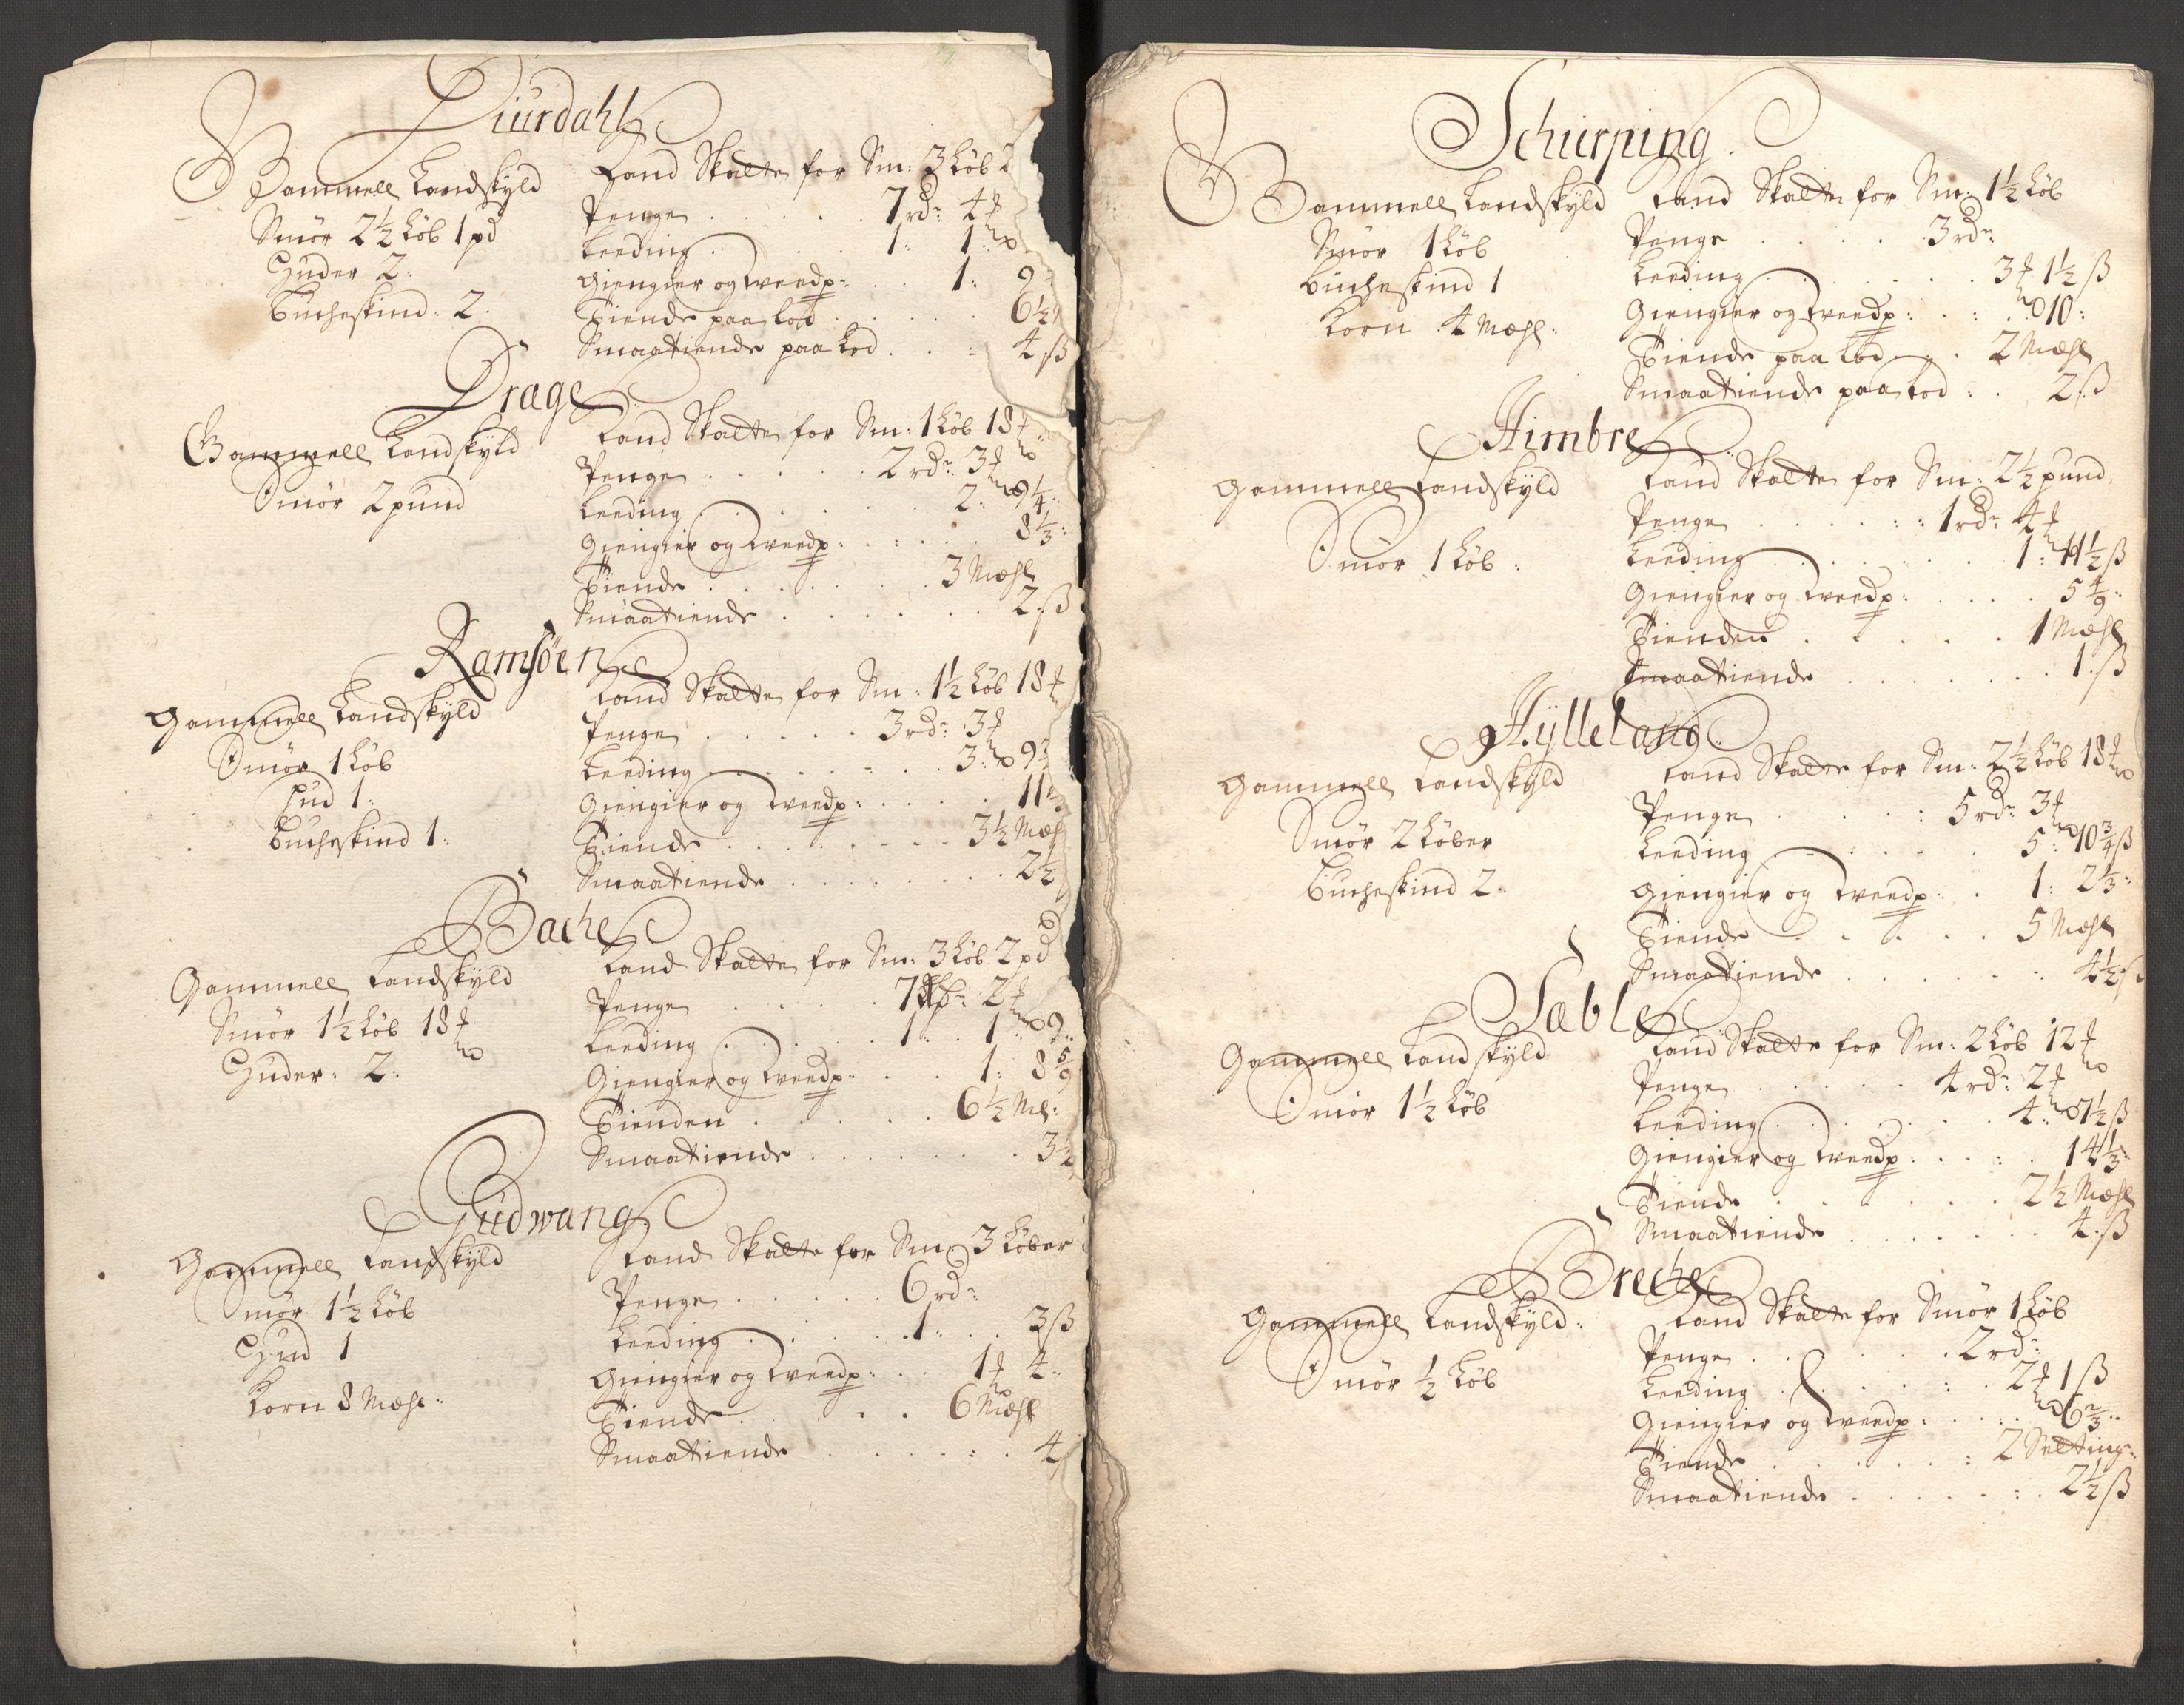 Diurdahl
Gammell Landskyld
Smör 2½ Löb 1 pd
Huder 2:
Bucheskind: 2:
Land Skatte for Sm: 3 Löb 2
Penge . . . . 7 rdr 4 ₰
Leeding . . . 1: 1:
Giengier og tweedp: . . 1: 9
Tiende paa Lod . . . . . 6½
Smaatiende paa Lod . . . 4 ß
Drage
Gammell Landskyld
Smör 2 pund
Land Skatte for Sm: 1 Löb 18 ₰
Penge . . . . . 2 rdr: 3 ₰
Leeding . . . . . . 2: 9¼:
Giengier og tweedp: . . . . 8⅓:
Tiende . . . . . . 3 Mæhl
Smaatiende . . . . . . 2 ß
Ramsöen
Gammell Landskyld
Smör 1 Löb
Hud 1:
Bucheskind 1:
Land Skatte for Sm: 1½ Löb 18 ₰
Penge . . . . . 3 rdr: 3 ₰
Leeding . . . . . . 3: 9
Giengier og tweedp: . . . . 11
Tiende . . . . . . 3½ Mæh
Smaatiende . . . . . . . 2½
Bache
Gammell Landskyld
Smör 1½ Löb 18 ₰
Huder: 2:
Land Skatte for Sm: 3 Löb 2 pd
Penge . . . . 7 2 ₰
Leeding . . . . 1: 1: 9:
Giengier og tweedp: . . . 1: 8 5/9
Tienden . . . . . 6½ Ml:
Smaatiende . . . . . . . 3½
Gudwang
Gammell Landskyld
Smör 1½ Löb
Hud 1
Korn 8 Mæhl:
Land Skatte for Sm: 3 Löber
Penge . . . . . 6 rdr:
Leeding . . . . . 1: . . 3 ß
Giengier og tweedp: . . . 1 ₰ 4:
Tiende . . . . . 6 Mæhl
Smaatiende . . . . . . 4
Schierping
Gammell Landskyld
Smör 1 Löb
Bucheskind 1
Korn 4 Mæhl:
Land Skatte for Sm: 1½ Löb
Penge . . . . . 3 rdr:
Leeding . . . . . . 3 ₰ 1½ ß
Giengier og tweedp: . . . 10:
Tiende paa Lod . . 2 Mæhl
Smaatiende paa Lod: . 2 ß
Himbre
Gammell Landskyld
Smör 1 Löb:
Land Skatte for Sm: 2½ pund
Penge . . . . . : 1 rdr: 4 ₰
Leeding . . . . . . 1: 11½ ß
Giengier og tweedp: . . . . 5 4/9:
Tienden . . . . . 1 Mæhl
Smaatiende . . . . . . . 1 ß
Hylleland
Gammell Landskyld
Smör 2 Löber
Bucheskind 2:
Land Skatte for Sm: 2½ Löb 18 ₰
Penge . . . . : 5 rdr: 3 ₰
Leeding . . . . . . 5: 10¾ ß
Giengier og tweedp: . . 1: 2⅓:
Tiende . . . . . 5 Mæhl
Smaatiende . . . . . . 4½ ß
Sæble
Gammell Landskyld
Smör 1½ Löb
Land Skatte for Sm: 2 Löb 12 ₰
Penge . . . . . 4 rdr: 2 ₰
Leeding . . . . . . 4: 7½ ß
Giengier og tweedp: . . . . 14⅓:
Tiende . . . . . . 2½ Mæhl
Smaatiende . . . . . . . 4 ß
Breche
Gammell Landskyld:
Smör ½ Löb
Land Skatte for Smör 1 Löb
Penge . . . . . . 2 rdr:
Leeding . . . . . . 2 ₰ 1 ß
Giengier og tweedp: . . . . 6⅔:
Tiende . . . . . : 2 Setting:
Smaatiende . . . . . . 2½ ß